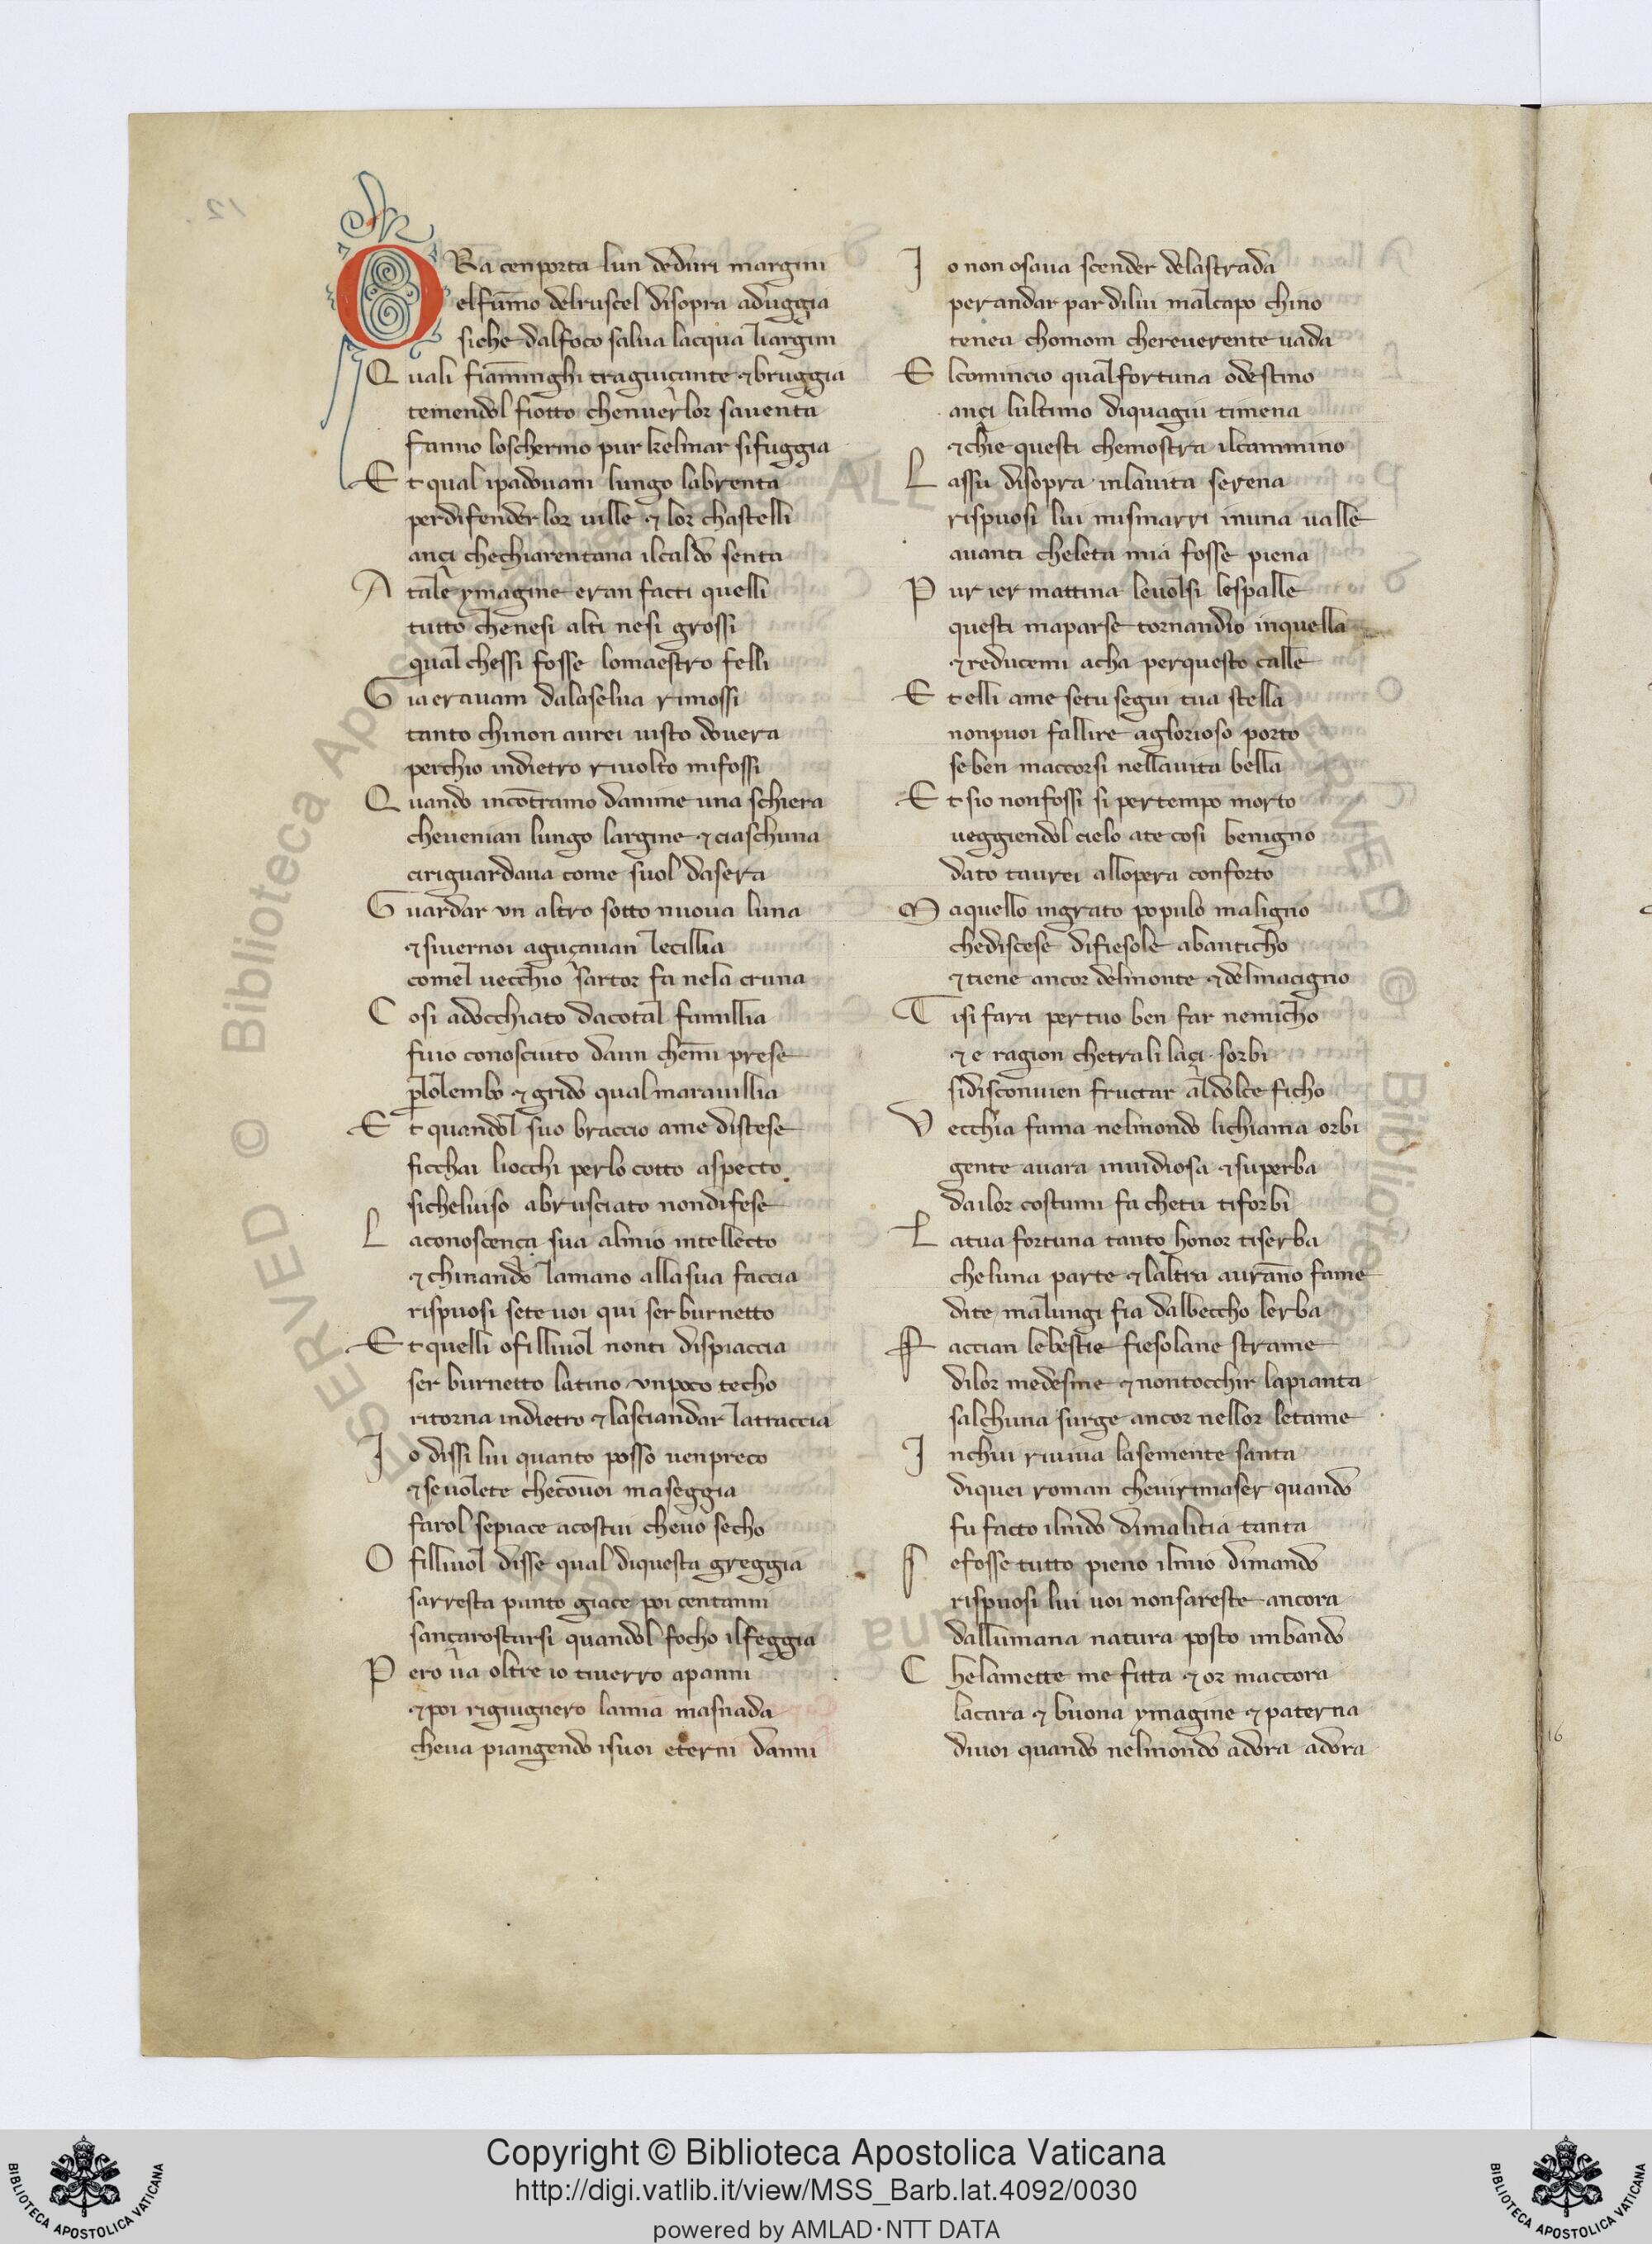 ORa cenporta lun deduri margini
elfūmo delruscel disopra aduggia
siche dalfoco salua lacqua liargini
Quali fiāminghi traguiçante ⁊bruggia
temendol fiotto chenuer lor sauenta
fanno loschermo pur kelmar sifuggia
Et qual ipadouani lungo labrenta
perdifender lor uille ⁊ lor chastelli
ançi chechiarentana ilcaldo senta
A tale ymagine eran facti quelli
tutto chenesi alti nesi grossi
qual chessi fosse lomaestro felli
Gia erauam dalaselua rimossi
tanto chinon aurei uisto douera
perchio indietro riuolto mifossi
Quando incōtramo danime una schiera
cheuenian lungo largine ⁊ ciaschuna
ciriguardaua come suol dasera
Guardar vn altro sotto nuoua luna
⁊ siuernoi aguçauan lecillia
comel uecchio sartor fa nela cruna
Cosi adocchiato dacotal famillia
fuio conosciuto daun chemi prese
p̲lolembo ⁊ grido qual marauillia
Et quandol suo braccio ame distese
ficchai liocchi perlo cotto aspecto
sicheluiso abrusciato nondifese
Laconoscença sua almio intellecto
⁊ chinando lamano allasua faccia
rispuosi sete uoi qui ser burnetto
Et quelli ofilliuol nonti dispiaccia
ser burnetto latino vnpoco techo
ritorna indietro ⁊ lasciandar lattraccia
Io dissi lui quanto posso uenpreco
⁊ seuolete checōuoi maseggia
farol sepiace acostui cheuo secho
O filliuol disse qual diquesta greggia
sarresta punto giace poi centanni
sançarostarsi quandol focho ilfeggia
Pero ua oltre io tiuerro apanni
⁊ poi rigiugnero lamia masnada
cheua piangendo isuoi eterni danni
Io non osaua scender delastrada
perandar par dilui malcapo chino
tenea chomom chereuerente uada
Elcomincio qualfortuna odestino
ançi lultimo diquagiu timena
⁊ chie questi chemostra ilcammino
Lassu disopra inlauita serena
rispuosi lui mismarri inuna ualle
auanti cheleta mia fosse piena
Pur ier mattina leuolsi lespalle
questi maparse tornandio inquella
⁊ reducemi acha perquesto calle
Et elli ame setu segui tua stella
nonpuoi fallire aglorioso porto
seben maccorsi nellauita bella
Et sio nonfossi si pertempo morto
ueggiendol cielo ate cosi benigno
dato taurei allopera conforto
Maquello ingrato populo maligno
chediscese difiesole abanticho
⁊ tiene ancor delmonte ⁊ delmacigno
Tisi fara pertuo ben far nemicho
⁊ e ragion chetrali laçi sorbi
sidisconuien fructar aldolce ficho
Vecchia fama nelmondo lichiama orbi
gente auara inuidiosa ⁊ superba
dailor costumi fa chetu tiforbi
Latua fortuna tanto honor tiserba
cheluna parte ⁊ laltra aurāno fame
dite malungi fia dalbeccho lerba
Faccian lebestie fiesolane strame
dilor medesme ⁊ nontocchir lapianta
salchuna surge ancor nellor letame
Inchui riuiua lasemente santa
diquei roman cheuirimaser quando
fu facto ilnido dimalitia tanta
Sefosse tutto pieno ilmio dimando
rispuosi lui uoi nonsareste ancora
dallumana natura posto inbando
Chelamette me fitta ⁊ or maccora
lacara ⁊ buona ymagine ⁊ paterna
diuoi quando nelmondo adora adora
16
Copyright © Biblioteca Apostolica Vaticana
http://digi.vatlib.it/view/MSS_Barb.lat.4092/0030
powered by AMLAD·NTT DATA
BIBLIOTECA APOSTOLICA VATICANA
BIBLIOTECA APOSTOLICA VATICANA